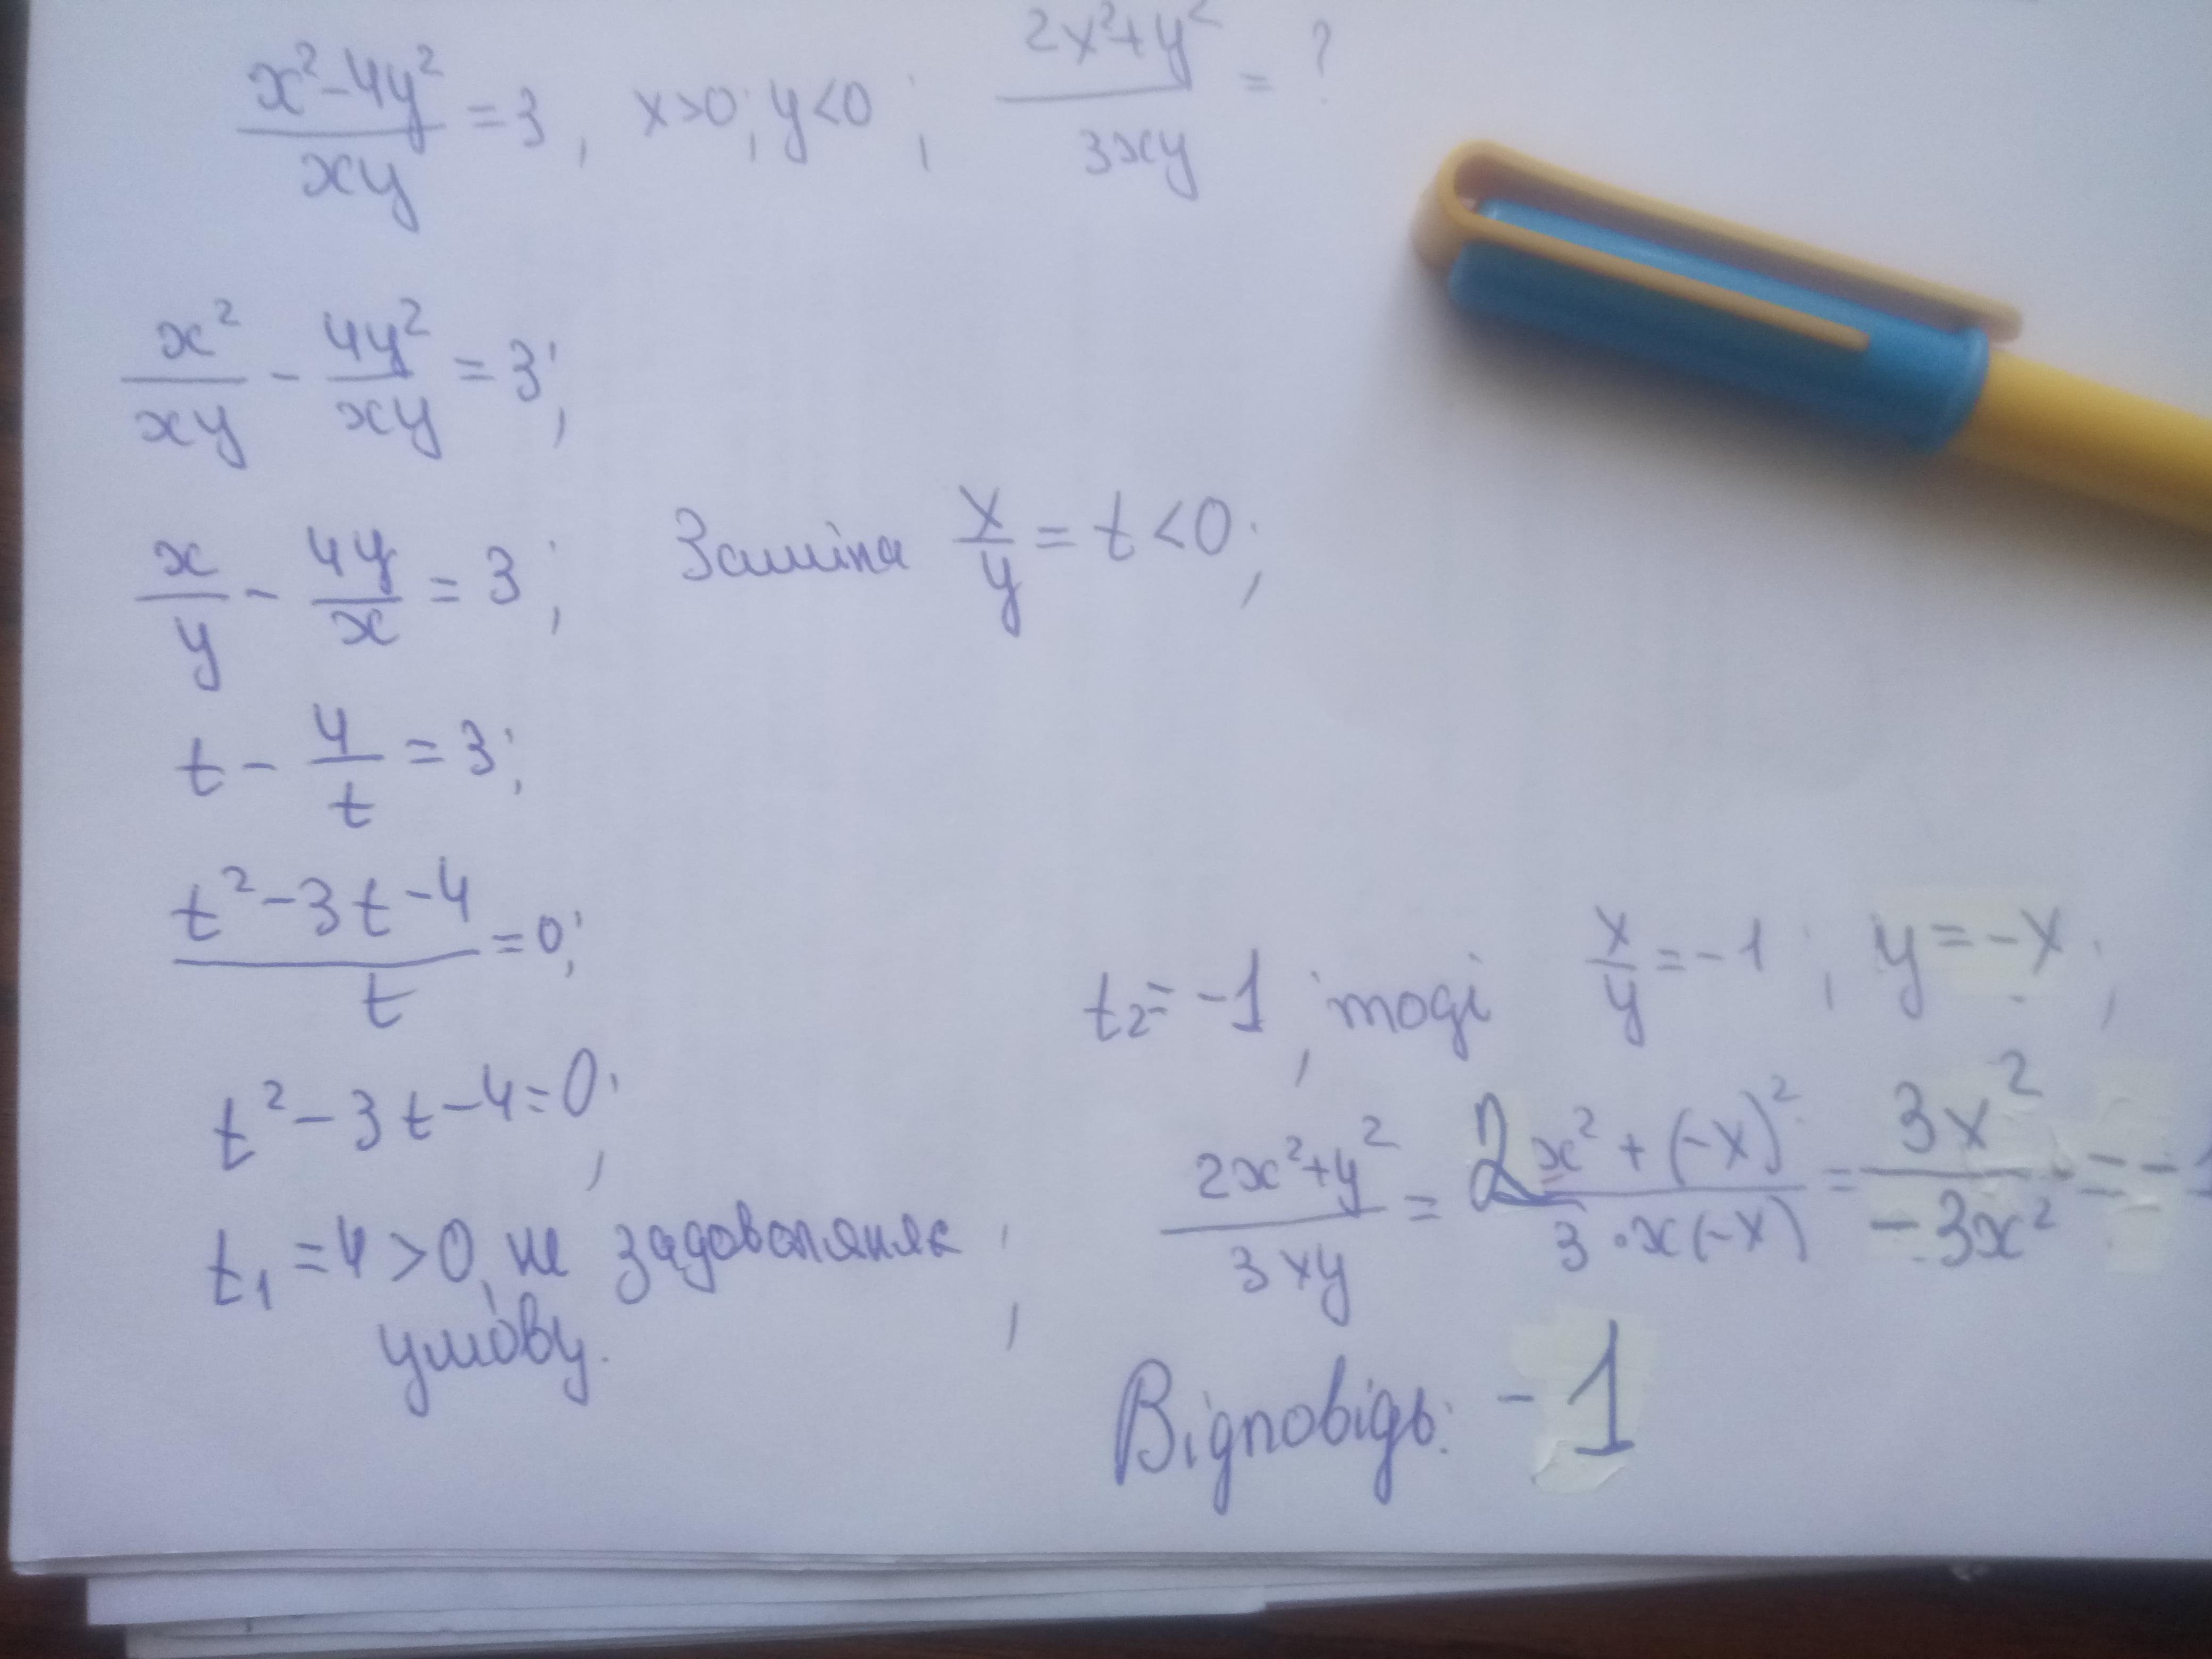 x²-4y²/xy = 3, x>0; y<0; 2x²+y²/3xy = ?
x²/xy - 4y²/xy = 3;
x/y - 4y/x = 3; Заміна x/y = t < 0;
t - 4/t = 3;
t²-3t-4/t = 0;
t²-3t-4=0;
t₁ = 4 > 0, не задовольняє
умову.
t₂ = -1, тоді x/y = -1; y = -x;
2x²+y²/3xy = 2x²+(-x)²/3·x(-x) = 3x²/-3x² = -1
Відповідь: -1